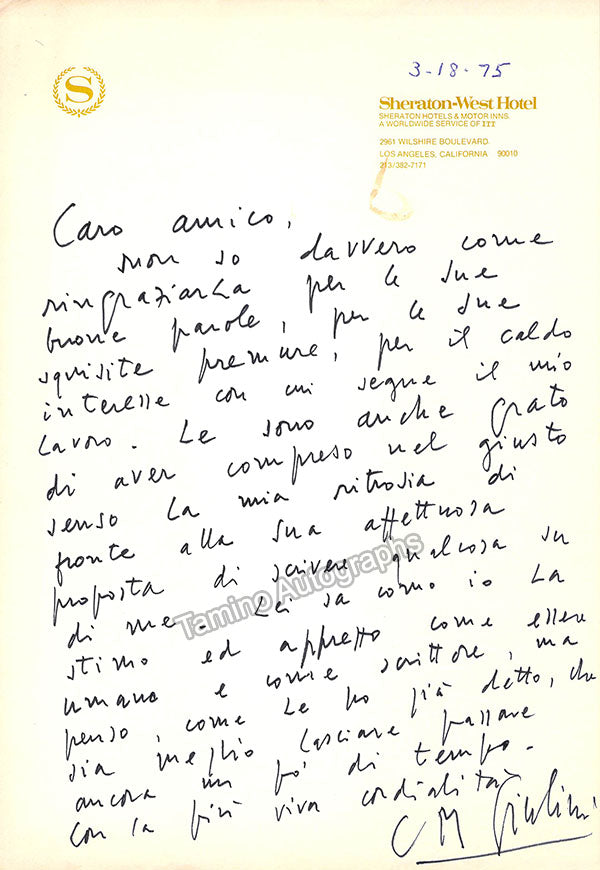 3-18-75
S
Sheraton-West Hotel
SHERATON HOTELS & MOTOR INNS.
A WORLDWIDE SERVICE OF ITT
2961 WILSHIRE BOULEVARD
LOS ANGELES, CALIFORNIA 90010
213/382-7171
Caro amico,
non so davvero come
ringraziarLa per le sue
buone parole, per le sue
squisite premure, per il caldo
interesse con cui segue il mio
lavoro. Le sono anche grato
di aver compreso nel giusto
senso la mia ritrosia di
fronte alla sua affettuosa
proposta di scrivere qualcosa su
di me. Lei sa como io La
stimo ed apprezzo come essere
umano e come scrittore, ma
penso, come Le ho già detto, che
sia meglio lasciare passare
ancora un pò di tempo.
Con la più viva cordialità
C M Giulini
Tamino Autographs